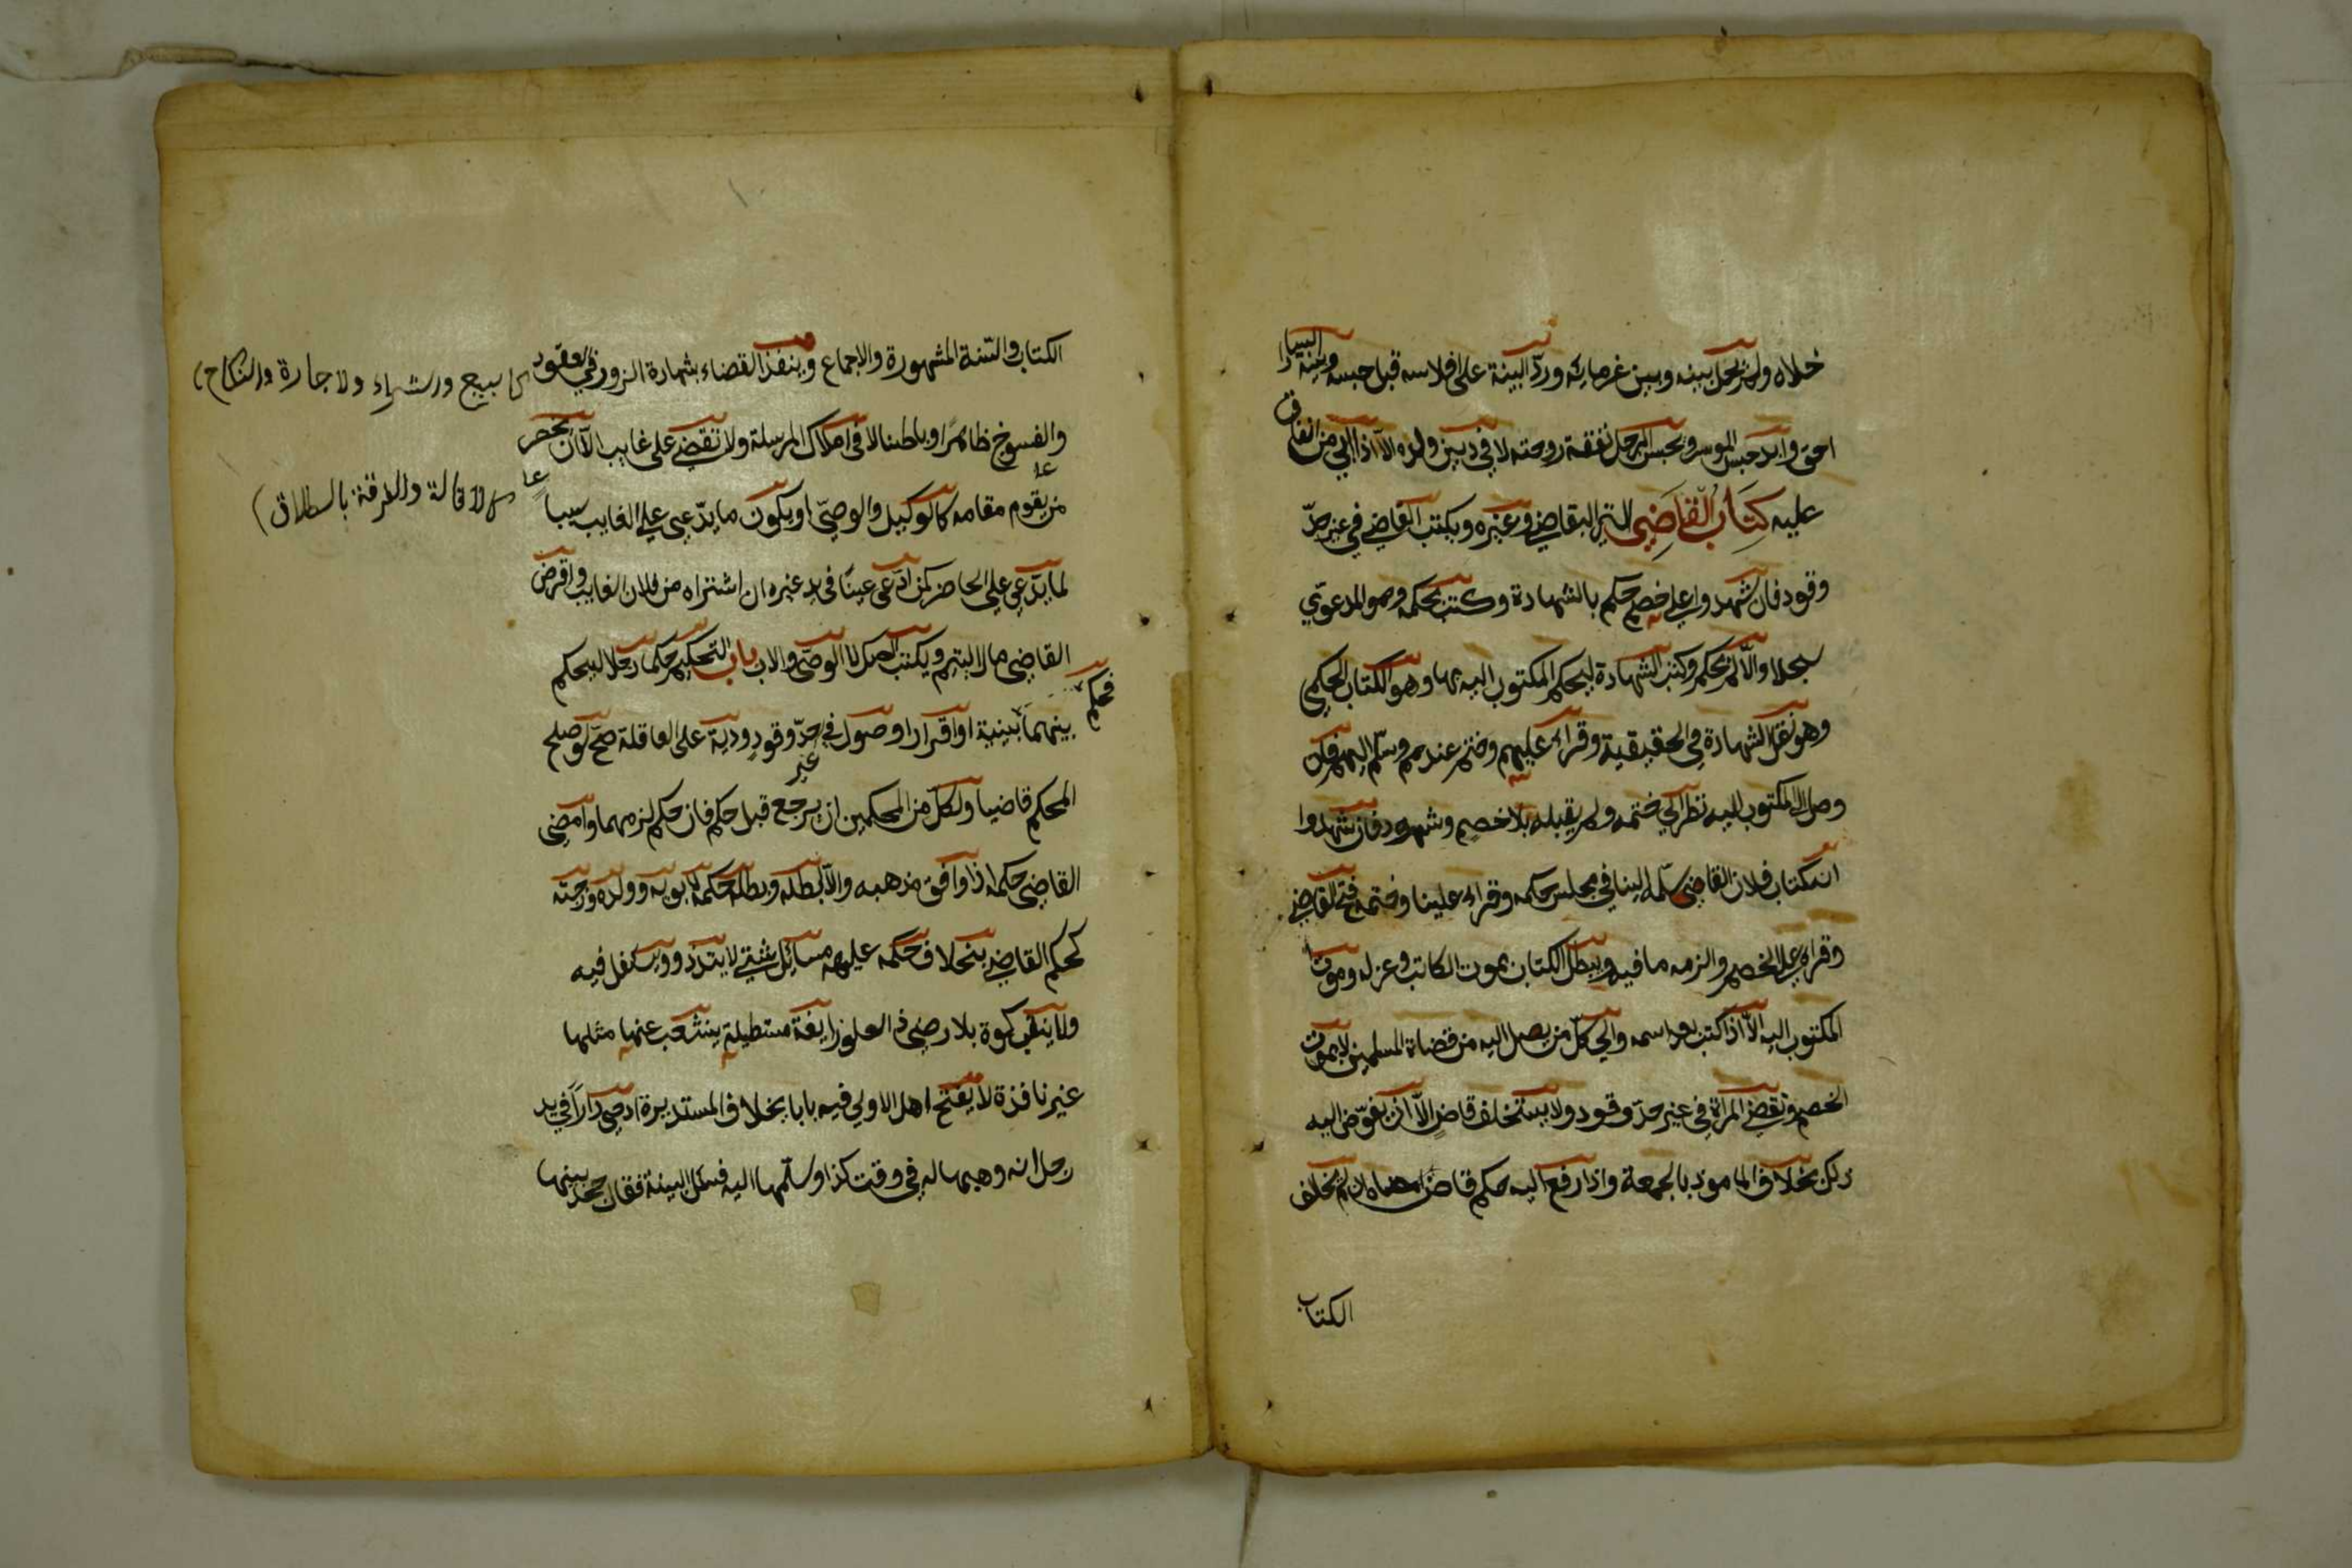 خلاه ولم يحل بينه وبين غرمايه ورد البينة على افلاسه قبل حبسه وبينة اليسار
احق وابد حبس الموسر ويحبس الرجل بنفقة زوجته لا في دين ولده الا اذا ابي من انفاق
عليه كتاب القاضي الى القاضي وغيره ويكتب القاضي في غير حد
وقود فان شهدوا على خصم حكم بالشهادة وكتب بحكمه وهو المدعوي
سجلا والا لم يحكم وكتب الشهادة ليحكم المكتوب اليه بها وهو الكتاب الحكمي
وهو نقل الشهادة في الحقيقية وقراء عليهم وختم عندهم وسلم اليهم فان
وصل الى المكتوب اليه نظر الي ختمه ولم يقبله بلا خصم وشهود فان شهدوا
انه كتاب فلان القاضي سلمه الينا في مجلس حكمه وقراء علينا وختمه فتح القاضي
وقراء على الخصم والزمه ما فيه ويبطل الكتاب بموت الكاتب وعزله وموت
المكتوب اليه الا اذا كتب بعد اسمه والي كل من يصل اليه من قضاة المسلمين لا بموت
الخصم وتقضي المراة في غير حد وقود ولا يستخلف قاض الا ان يفوض اليه
ذلك بخلاف المامور بالجمعة واذا رفع اليه حكم قاض امضاه ان لم يخالف
الكتاب
الكتاب والسنة المشهورة والاجماع وينفذ القضاء بشهادة الزور في العقود
كالبيع والشراء والاجارة والنكاح
والفسوخ ظاهرا وباطنا لا في املاك المرسلة ولا تقضي على غايب الا ان يحضر
كالاقالة والفرقة بالطلاق
من يقوم مقامه كالوكيل والوصي او يكون ما يدعي على الغايب سببا
لما يدعي على الحاضر كمن ادعى عينا في يد غيره ان اشتراه من فلان الغايب واقرض
القاضي مال اليتيم ويكتب الصك لا الوصي والاب باب التحكيم حكما رجلا ليحكم
بينهما فحكم ببينة او اقرار او نكول في غير حد وقود ودية على العاقلة صح لو صلح
المحكم قاضيا ولكل من المحكمين ان يرجع قبل حكم فان حكم لزمهما وامضى
القاضي حكمه اذا وافق مذهبه والا ابطله وبطل حكمه لابويه وولده وزوجته
كحكم القاضي بخلاف حكمه عليهم مسائل شتي لا يتد ذو سفل فيه
ولا ينقب كوة بلا رضي ذو العلو زايغة مستطيلة ينشعب عنها مثلها
غير نافذة لا يفتح اهل الاولي فيه بابا بخلاف المستديرة ادعي دارا في يد
رجل انه وهبها له في وقت كذا وسلمها اليه فسئل البينة فقال جحدنيها